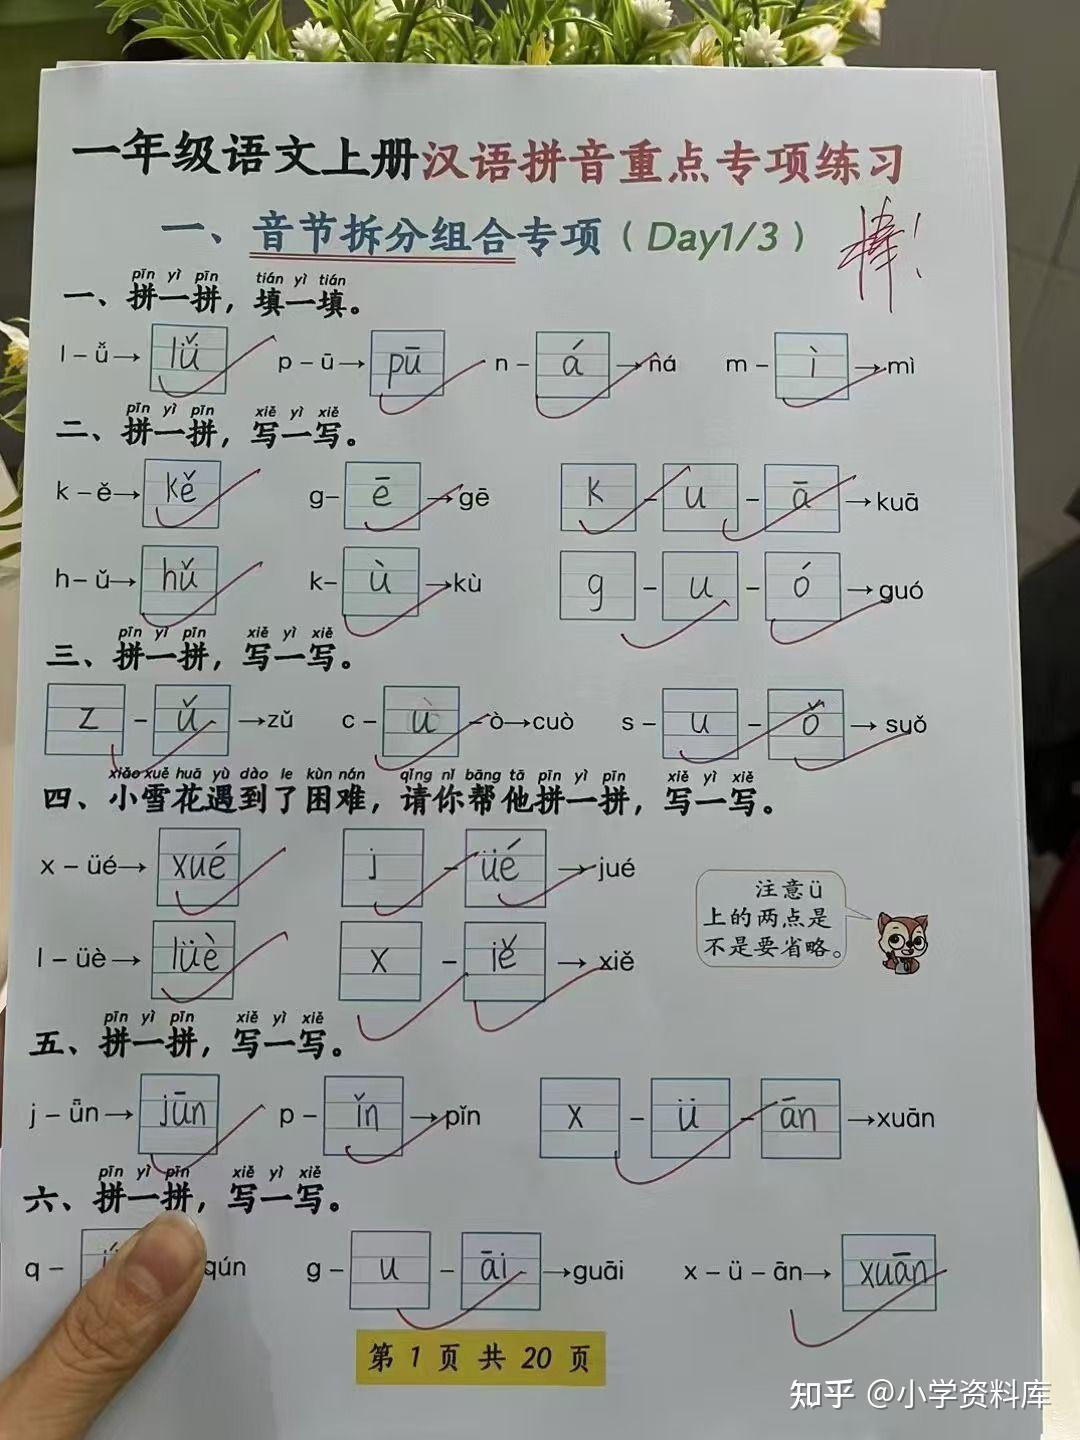 一年级语文上册汉语拼音重点专项练习
一、音节拆分组合专项（Day1/3）
棒！
pīn yì pīn tián yì tián
一、拼一拼，填一填。
l－ǚ→ lǚ p－ū→ pū n－ á →ná m－ ì →mì
pīn yì pīn xiě yì xiě
二、拼一拼，写一写。
k－ě→ kě g－ ē →gē k － u － ā →kuā
h－ǔ→ hǔ k－ ù →kù g － u － ó →guó
pīn yì pīn xiě yì xiě
三、拼一拼，写一写。
z － ǔ →zǔ c－ u －ò→cuò s－ u － ǒ →suǒ
xiǎo xuě huā yù dào le kùn nán qǐng nǐ bāng tā pīn yì pīn xiě yì xiě
四、小雪花遇到了困难，请你帮他拼一拼，写一写。
x－üé→ xué j － üé →jué
注意ü
上的两点是
不是要省略。
l－üè→ lüè x － iě →xiě
pīn yì pīn xiě yì xiě
五、拼一拼，写一写。
j－ǖn→ jūn p－ ǐn →pǐn x － ü － ān →xuān
pīn yì pīn xiě yì xiě
六、拼一拼，写一写。
q－ qún g－ u － āi →guāi x－ü－ān→ xuān
第 1 页 共 20 页
知乎 @小学资料库